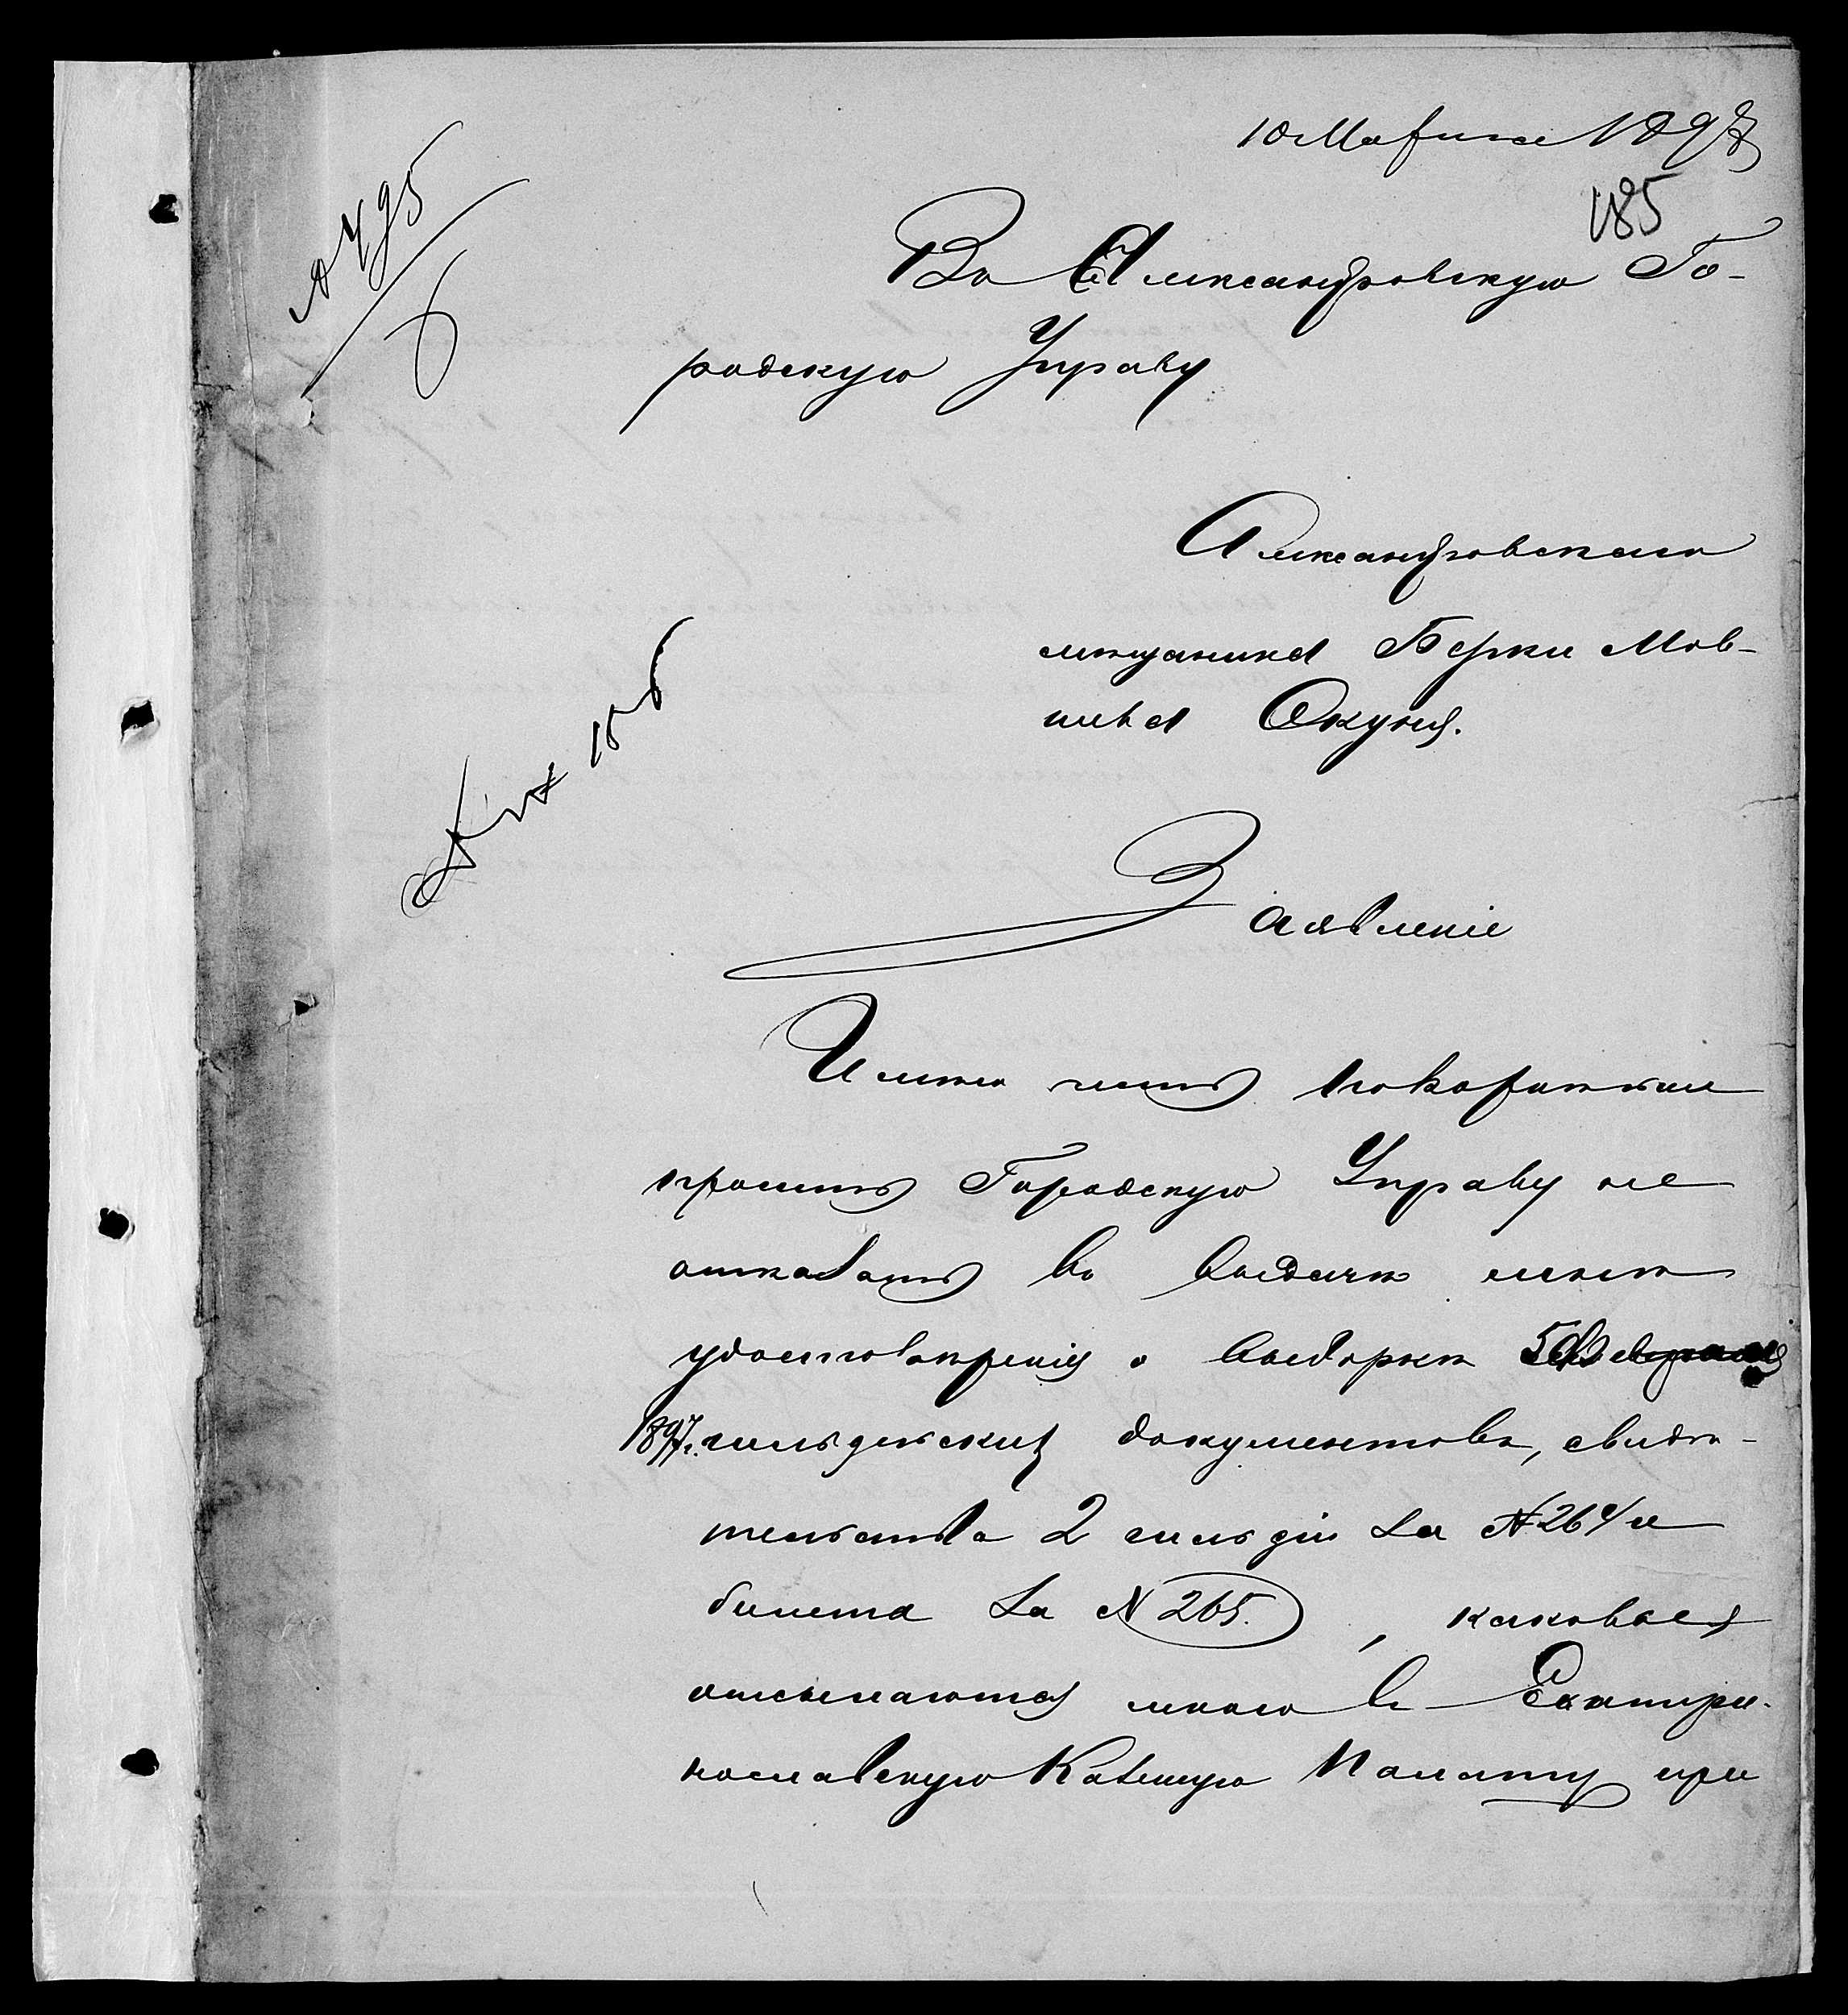 10 Марта 1897
185
№ 495
Въ Александровскую Го-
родскую Управу
Александровскаго
мѣщанина Берки Мов-
шева Окуня.
Заявленіе
Имѣю честь покорнѣйше
просить Городскую Управу не
отказать въ выдачѣ мнѣ
удостовѣренія о выборкѣ 5 Февраля
1897 г. гильдейскихъ документовъ, свидѣ-
тельства 2 гильдіи за № 264 и
билета за № 265. , каковые
отсылаются мною въ Екатери-
нославскую Казенную Палату при